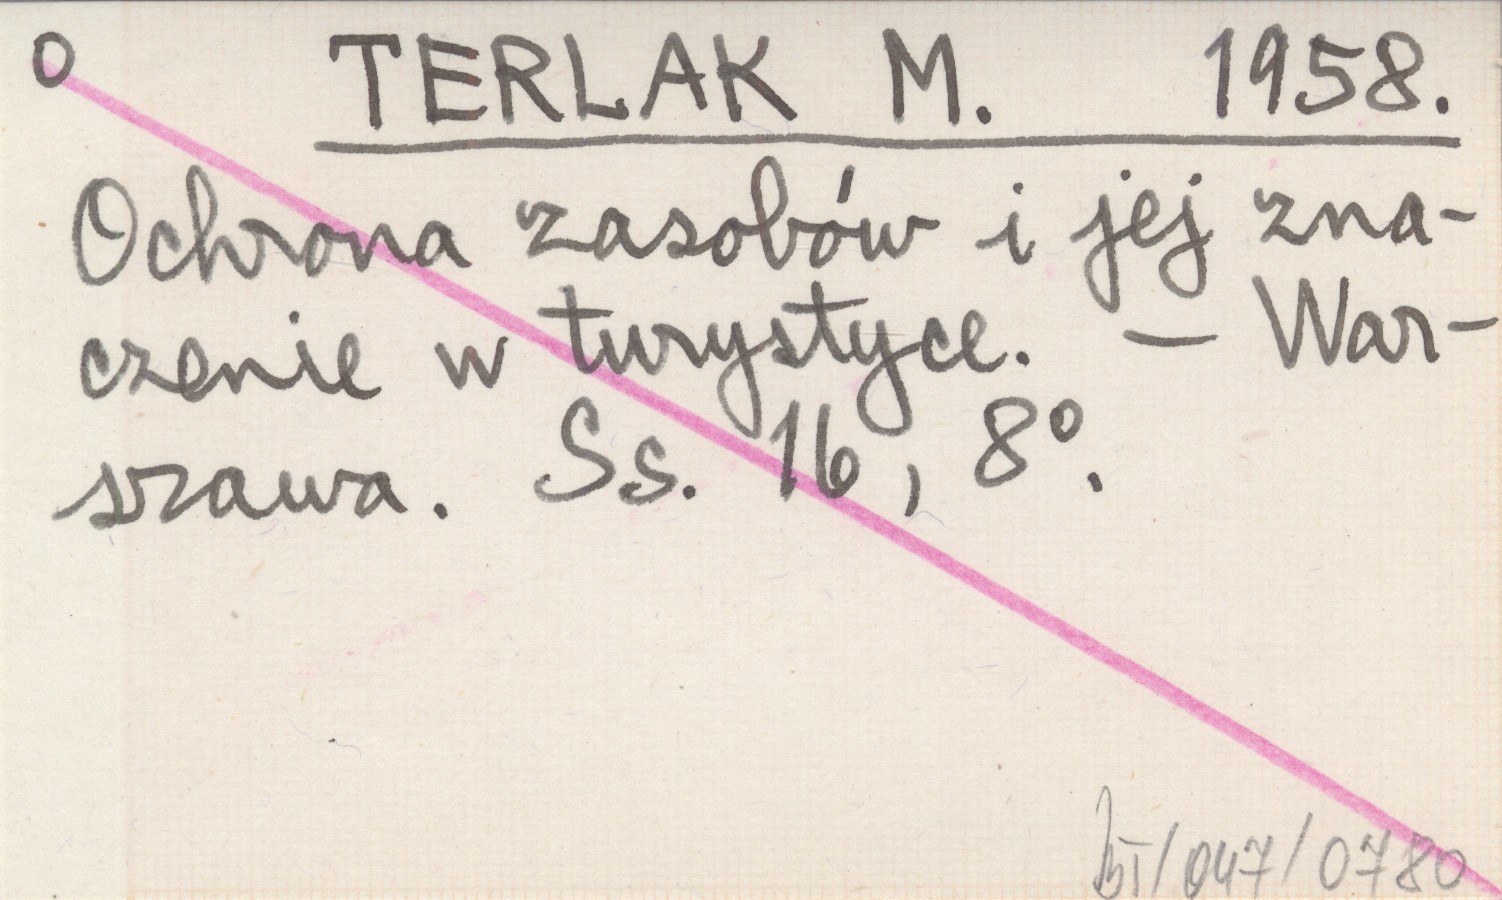 O TERLAK M. 1958.
Ochrona zasobów i jej zna-
czenie w turystyce. — War-
szawa. Ss. 16, 8°.
bI/047/0780